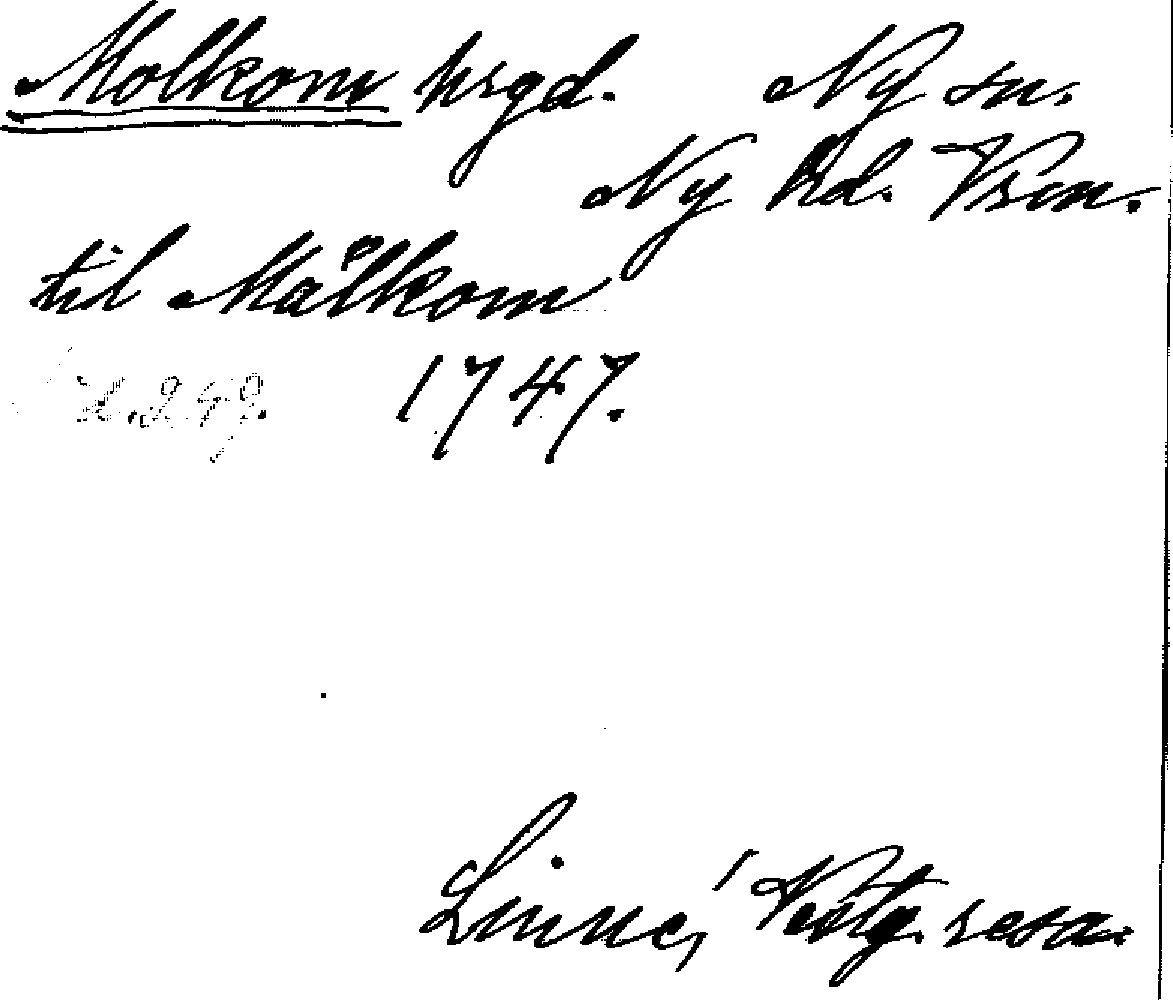 Molkom hrgd. Ny sn.
Ny hd. Vrm.
til Målkom
s. 249. 1747.
Linné, Västg. resa.